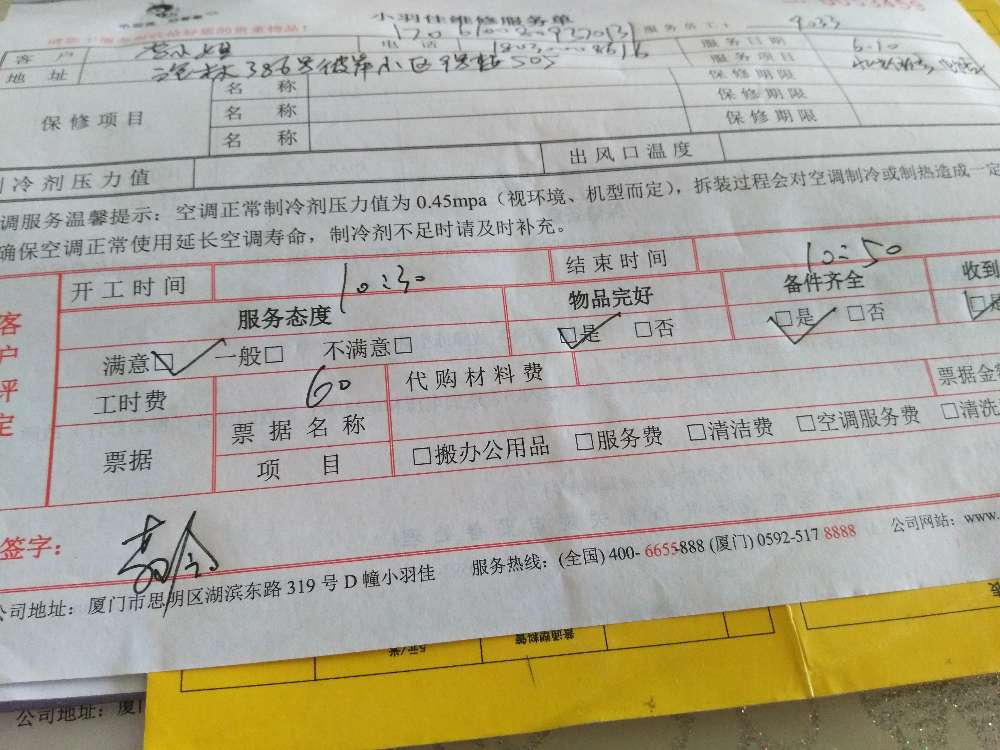 小羽佳维修服务单
服务员工: 9033
客 户 电 话 服务日期 6.10
地 址 386号彼岸小区 505 服务项目
保修项目 名 称 保修期限
名 称 保修期限
名 称 保修期限
冷剂压力值 出风口温度
调服务温馨提示：空调正常制冷剂压力值为 0.45mpa（视环境、机型而定），拆装过程会对空调制冷或制热造成一定
确保空调正常使用延长空调寿命，制冷剂不足时请及时补充。
客户评定
开工时间 10:30 结束时间 10:50
服务态度 物品完好 备件齐全 收到
满意□ 一般□ 不满意□ □是 □否 □是 □否
工时费 60 代购材料费 票据金
票据 票据名称
项 目 □搬办公用品 □服务费 □清洁费 □空调服务费 □清洗
签字：
公司地址：厦门市思明区湖滨东路 319 号 D 幢小羽佳 服务热线：(全国) 400- 6655-888 (厦门) 0592-517 8888 公司网站：www.
5元/米
公司地址：厦门